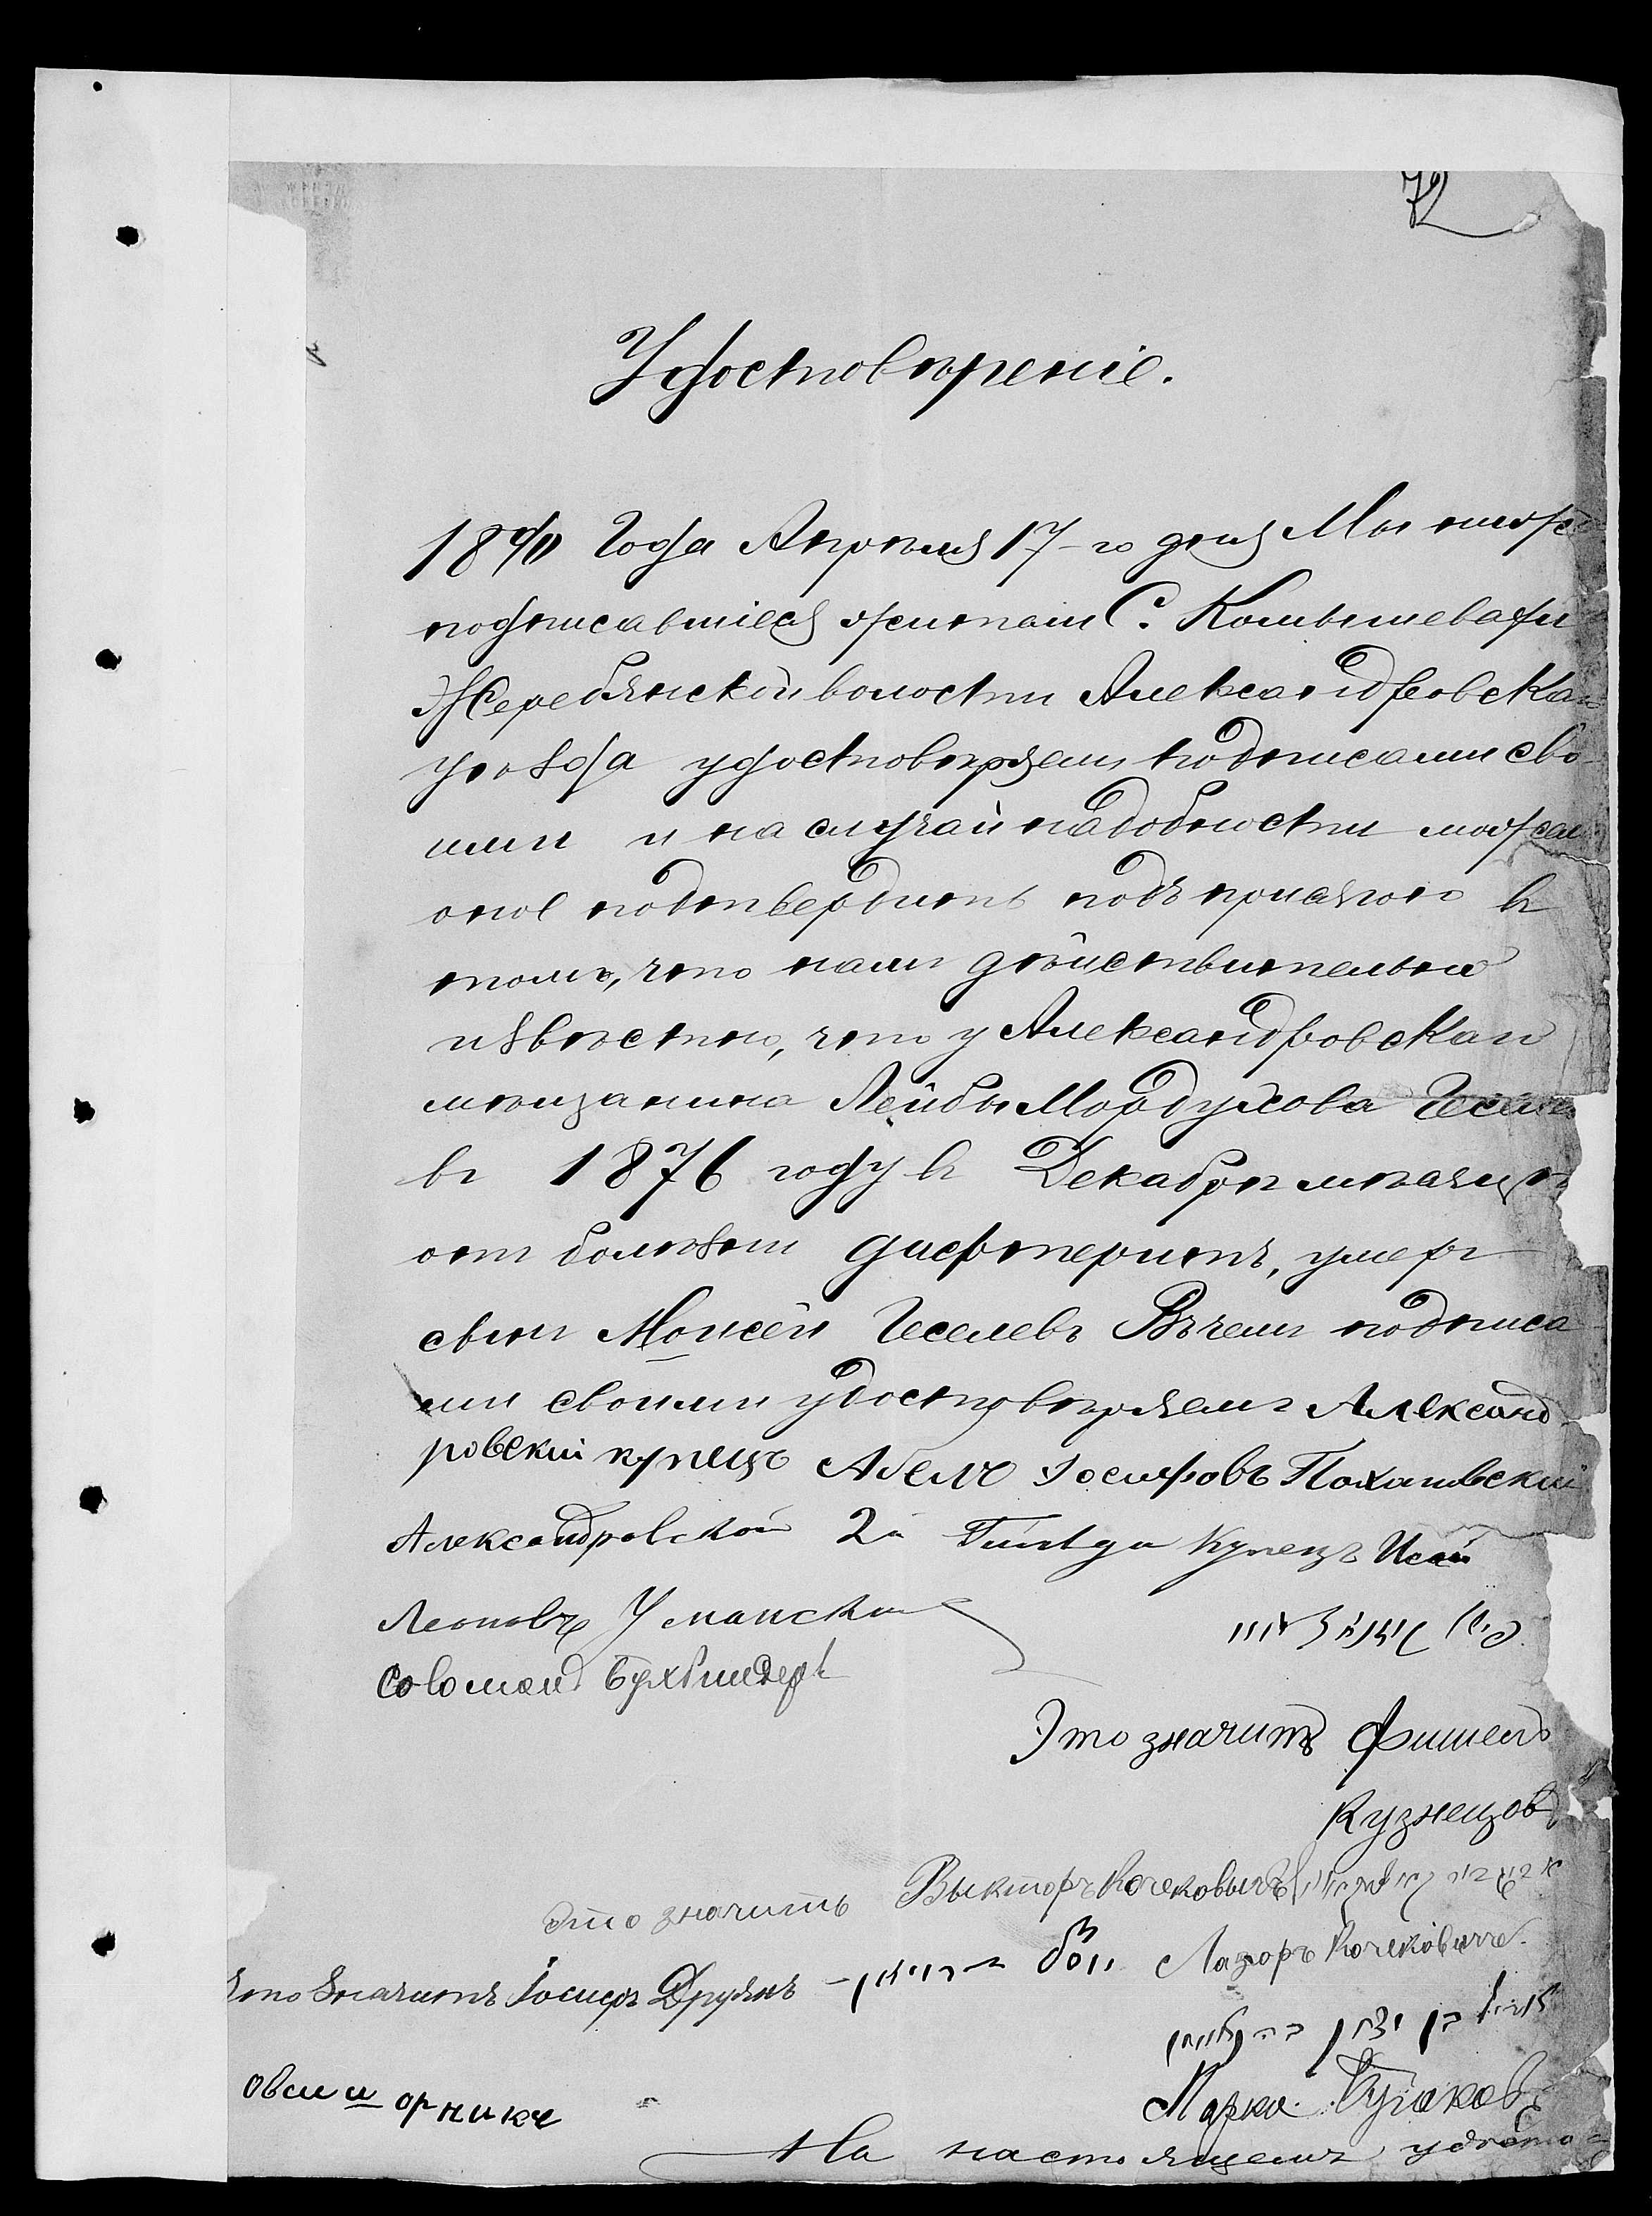 72
Удостовѣреніе.
1890 Года Апрѣля 17-го дня Мы ниже
подписавшіеся жители С. Камышевахи
Жеребянской волости Александровскаго
уѣзда удостовѣряемъ подписами сво
ими и на случай надобности можемъ
оное подтвердить подъ присягою въ
томъ, что намъ дѣйствительно
извѣстно, что у Александровскаго
мѣщанина Лейбы Мордухова Гесел
въ 1876 году въ Декабрѣ мѣсяцѣ
отъ болѣзни дифтеритъ, умеръ
сынъ Моисей Геселевъ Въ чемъ подписа
ми своими удостовѣряемъ Александ
ровскій купецъ Абелъ Іосифовъ
Александровской 2й Гильди Купецъ Исай
Леоновъ Уманскій
Соломон Бухбиндеръ
Это значитъ Фишель
Кузнецовъ
это значитъ Викторъ Кочековичъ
Это значитъ Іосифъ Друянъ Лазоръ Кочековичъ
בן יצחק
Марко
овсій орникъ
На настоящемъ удосто